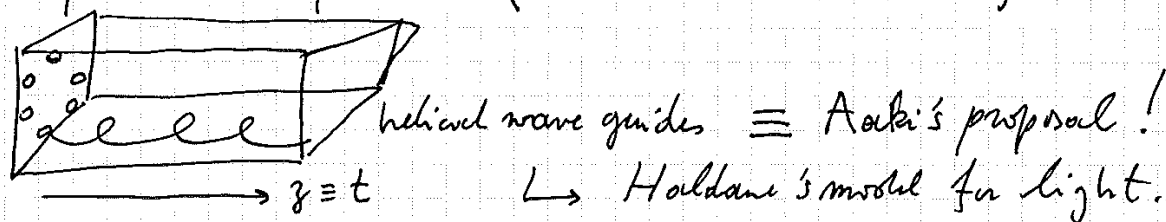 helical wave guides ≡ Aoki's proposal!
z ≡ t ↳ Haldane's model for light.